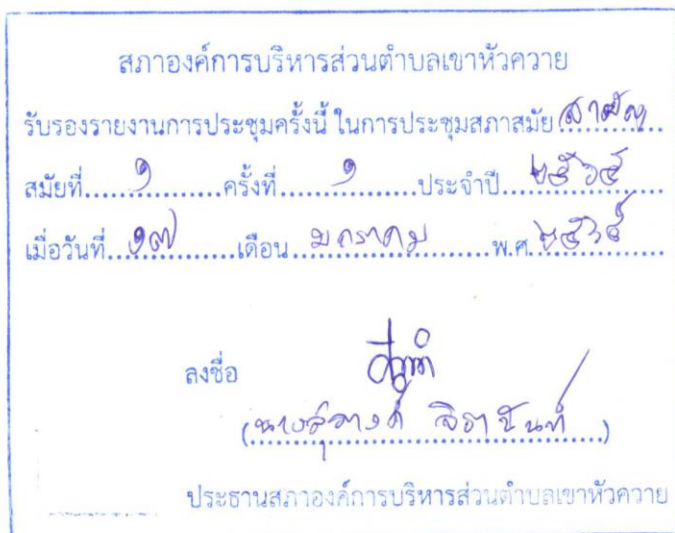 สภาองค์การบริหารส่วนตำบลเขาหัวควาย
รับรองรายงานการประชุมครั้งนี้ ในการประชุมสภาสมัย สามัญ
สมัยที่ ๑ ครั้งที่ ๑ ประจำปี ๒๕๖๕
เมื่อวันที่ ๑๗ เดือน มกราคม พ.ศ. ๒๕๖๕
ลงชื่อ
( จิรานันท์ )
ประธานสภาองค์การบริหารส่วนตำบลเขาหัวควาย